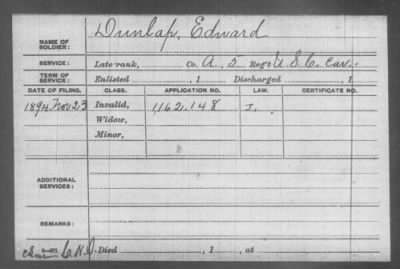 NAME OF SOLDIER: Dunlap, Edward
SERVICE: Late rank, Co. A, 5 Reg't U.S.C. Cav.
TERM OF SERVICE: Enlisted , 1 Discharged , 1
DATE OF FILING. CLASS. APPLICATION NO. LAW. CERTIFICATE NO.
1894. Nov 23 Invalid, 1,162,148
Widow,
Minor,
ADDITIONAL SERVICES:
REMARKS:
Died , 1 , at